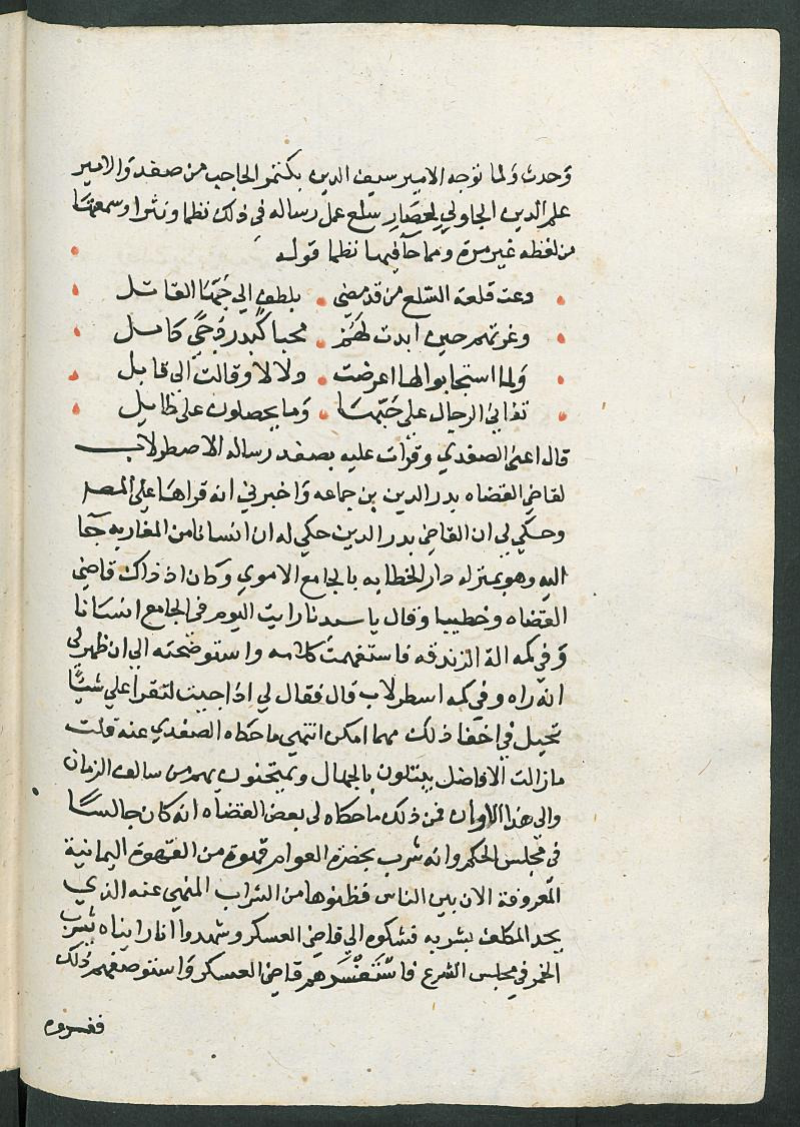 وحدث ولما توجه الامير سيف الدين بكتمر الحاجب من صفد والامير
علم الدين الجاولي لحصار سلع عمل رساله في ذلك نظما ونثرا وسمعتها
من لفظه غير مرة ومما جآ فيها نظما قوله
دعت قلعة السلع من قد مضي بلطف الي حبها القاتل
وغرتهم حين ابدت لهم محيا كبدر دجي كامل
ولما استجابوا لها اعرضت دلالا وقالت الي قابل
تفاني الرجال علي حبها وما يحصلون علي طايل
قال اعني الصفدي وقرات عليه بصفد رساله الاصطرلاب
لقاضي القضاه بدر الدين بن جماعه واخبرني انه قراها علي المص
وحكي لي ان القاضي بدر الدين حكي له ان انسانا من المغاربه جآ
اليه وهو بمنزله دار الخطابه بالجامع الاموي وكان اذ ذاك قاضي
القضاه وخطيبا وقال يا سيدنا رايت اليوم في الجامع انسانا
وفي كمه الة الزندقه فاستفهمت كلامه واستوضحته الي ان ظهر لي
انه راه وفي كمه اسطرلاب قال فقال لي اذا جيت لتقرا علي شيًا
تحيل في اخفا ذلك مهما امكن انتهي ما حكاه الصفدي عنه قلت
ما زالت الافاضل يبتلون بالجهال ويمتحنون بهم من سالف الزمان
والي هذا الاوان فمن ذلك ما حكاه لي بعض القضاه انه كان جالسا
في مجلس الحكم وانه شرب بحضرة العوام قهوة من القهوة اليمانية
المعروفة الان بين الناس فظنوها من الشراب المنهي عنه الذي
يحد المكلف بشربه فشكوه الي قاضي العسكر وشهدوا انا رايناه يشرب
الخمر في مجلس الشرع فاستفسرهم قاضي العسكر واستوصفهم ذلك
ففسروه